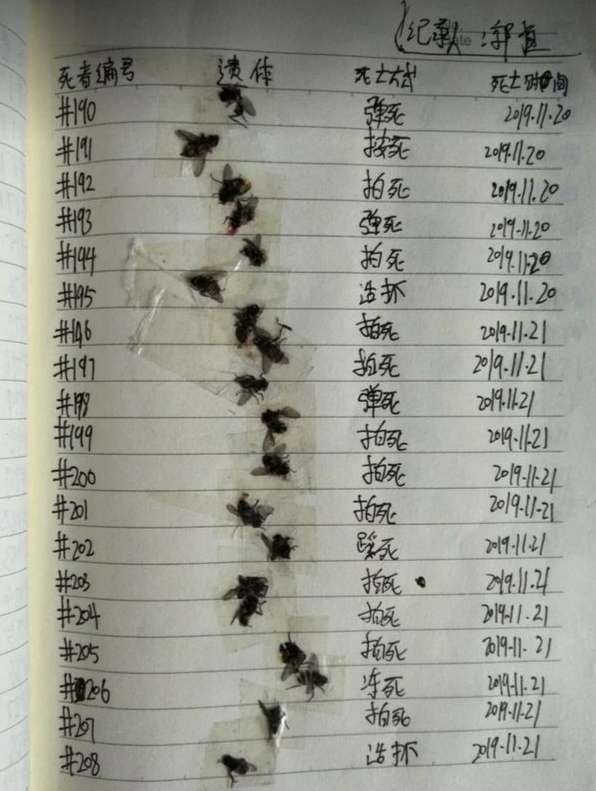 纪录人 ate 郭
死者编号 遗体 死亡方式 死亡时间
#190 弹死 2019.11.20
#191 按死 2019.11.20
#192 拍死 2019.11.20
#193 弹死 2019.11.20
#194 拍死 2019.11.20
#195 选择 2019.11.20
#196 拍死 2019.11.21
#197 拍死 2019.11.21
#198 弹死 2019.11.21
#199 拍死 2019.11.21
#200 拍死 2019.11.21
#201 拍死 2019.11.21
#202 踩死 2019.11.21
#203 拍死 2019.11.21
#204 拍死 2019.11.21
#205 拍死 2019.11.21
#206 冻死 2019.11.21
#207 拍死 2019.11.21
#208 2019.11.21